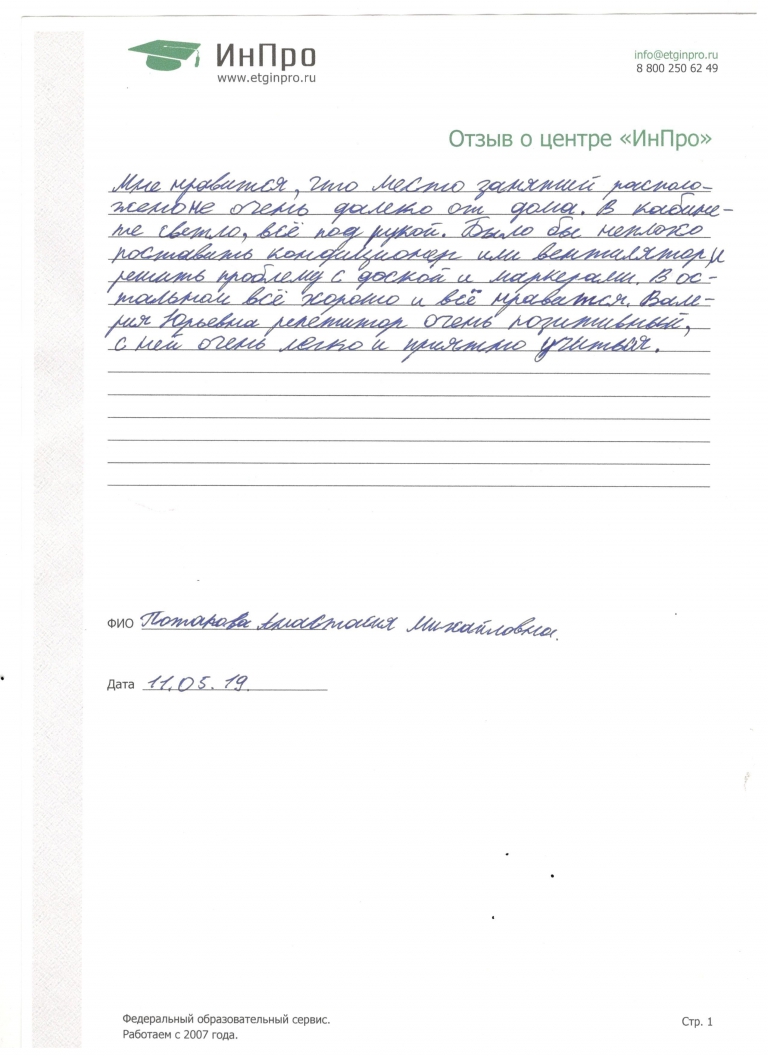 ИнПро
www.etginpro.ru
info@etginpro.ru
8 800 250 62 49
Отзыв о центре «ИнПро»
Мне нравится, что место занятий располо-
жено не очень далеко от дома. В кабине-
те светло, всё под рукой. Было бы неплохо
поставить кондиционер или вентилятор и
решить проблему с доской и маркерами. В ос-
тальном всё хорошо и всё нравится. Вале-
рия Юрьевна репетитор очень позитивный,
с ней очень легко и приятно учиться.
ФИО Анастасия Михайловна.
Дата 11.05.19.
Федеральный образовательный сервис.
Работаем с 2007 года.
Стр. 1